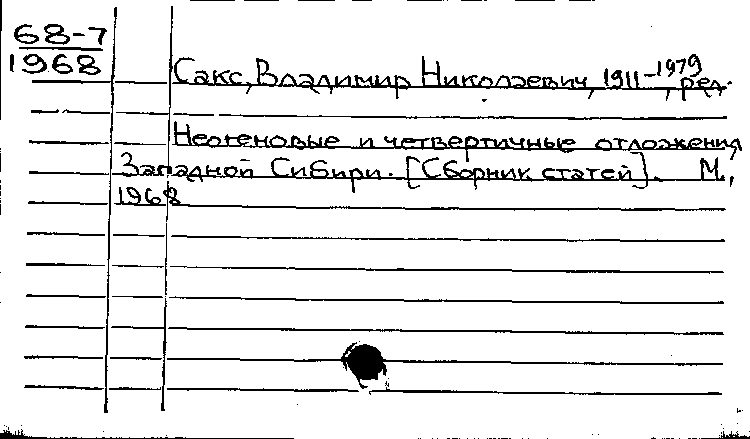 68-7
1968
Сакс, Владимир Николаевич, 1911-1979, ред.
Неогеновые и четвертичные отложения
Западной Сибири. [Сборник статей]. М.,
1968